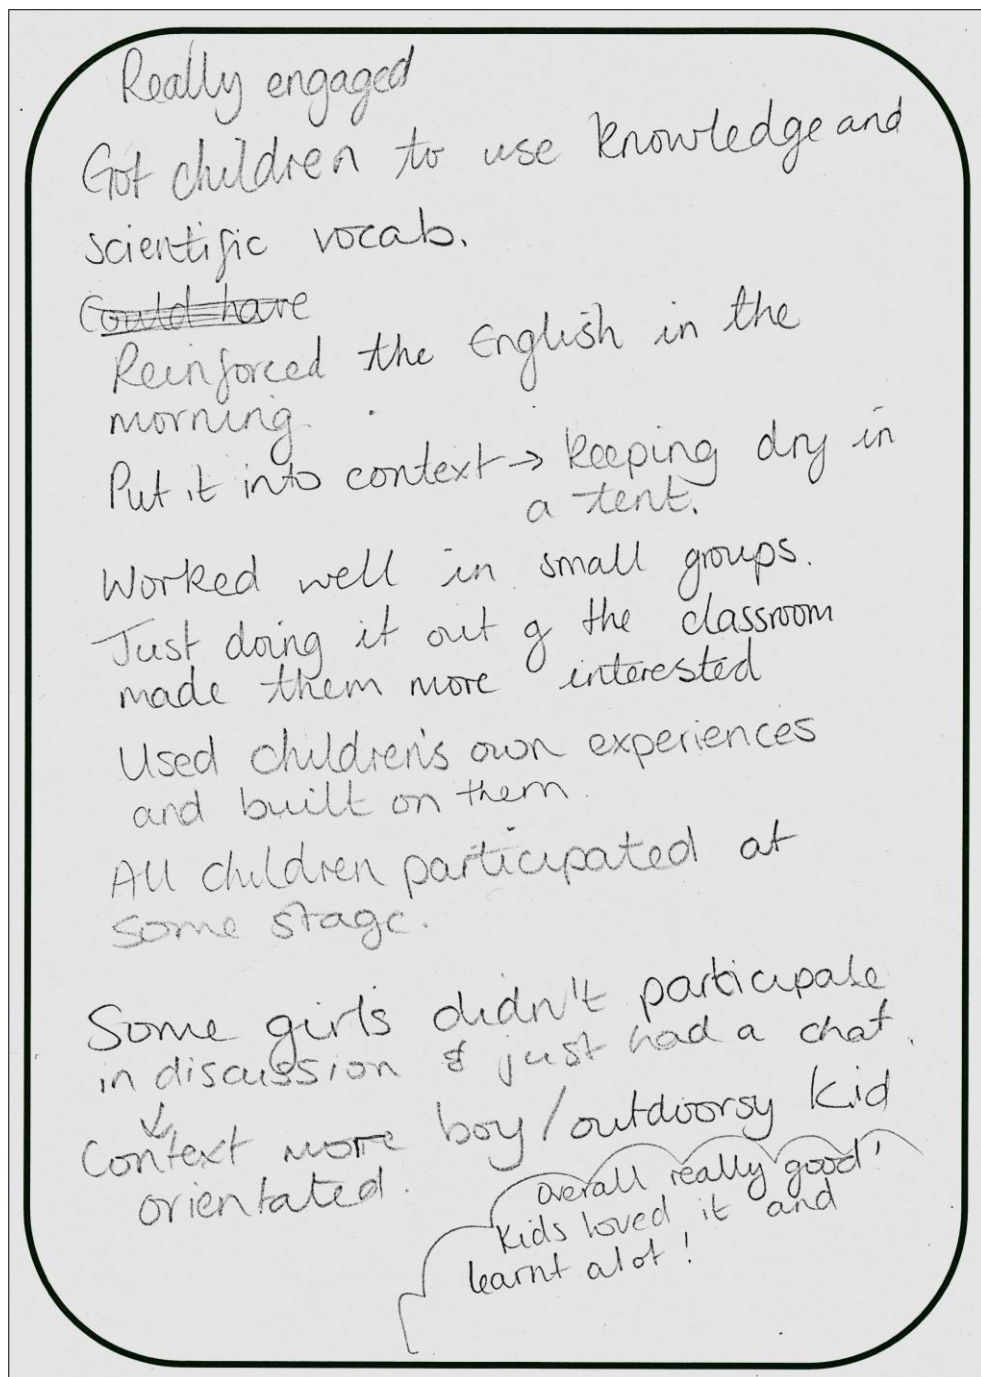 Really engaged
Got children to use knowledge and
scientific vocab.
Could have
Reinforced the English in the
morning.
Put it into context → keeping dry in
a tent.
Worked well in small groups.
Just doing it out of the classroom
made them more interested
Used children's own experiences
and built on them.
All children participated at
some stage.
Some girls didn't participate
in discussion & just had a chat.
↓
Context more boy/outdoorsy kid
orientated.
Overall really good!
Kids loved it and
learnt alot!